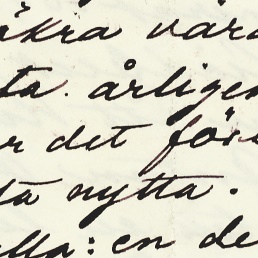 åkra vår
ta. årligen
r det för
ta nytta.
lla: en de